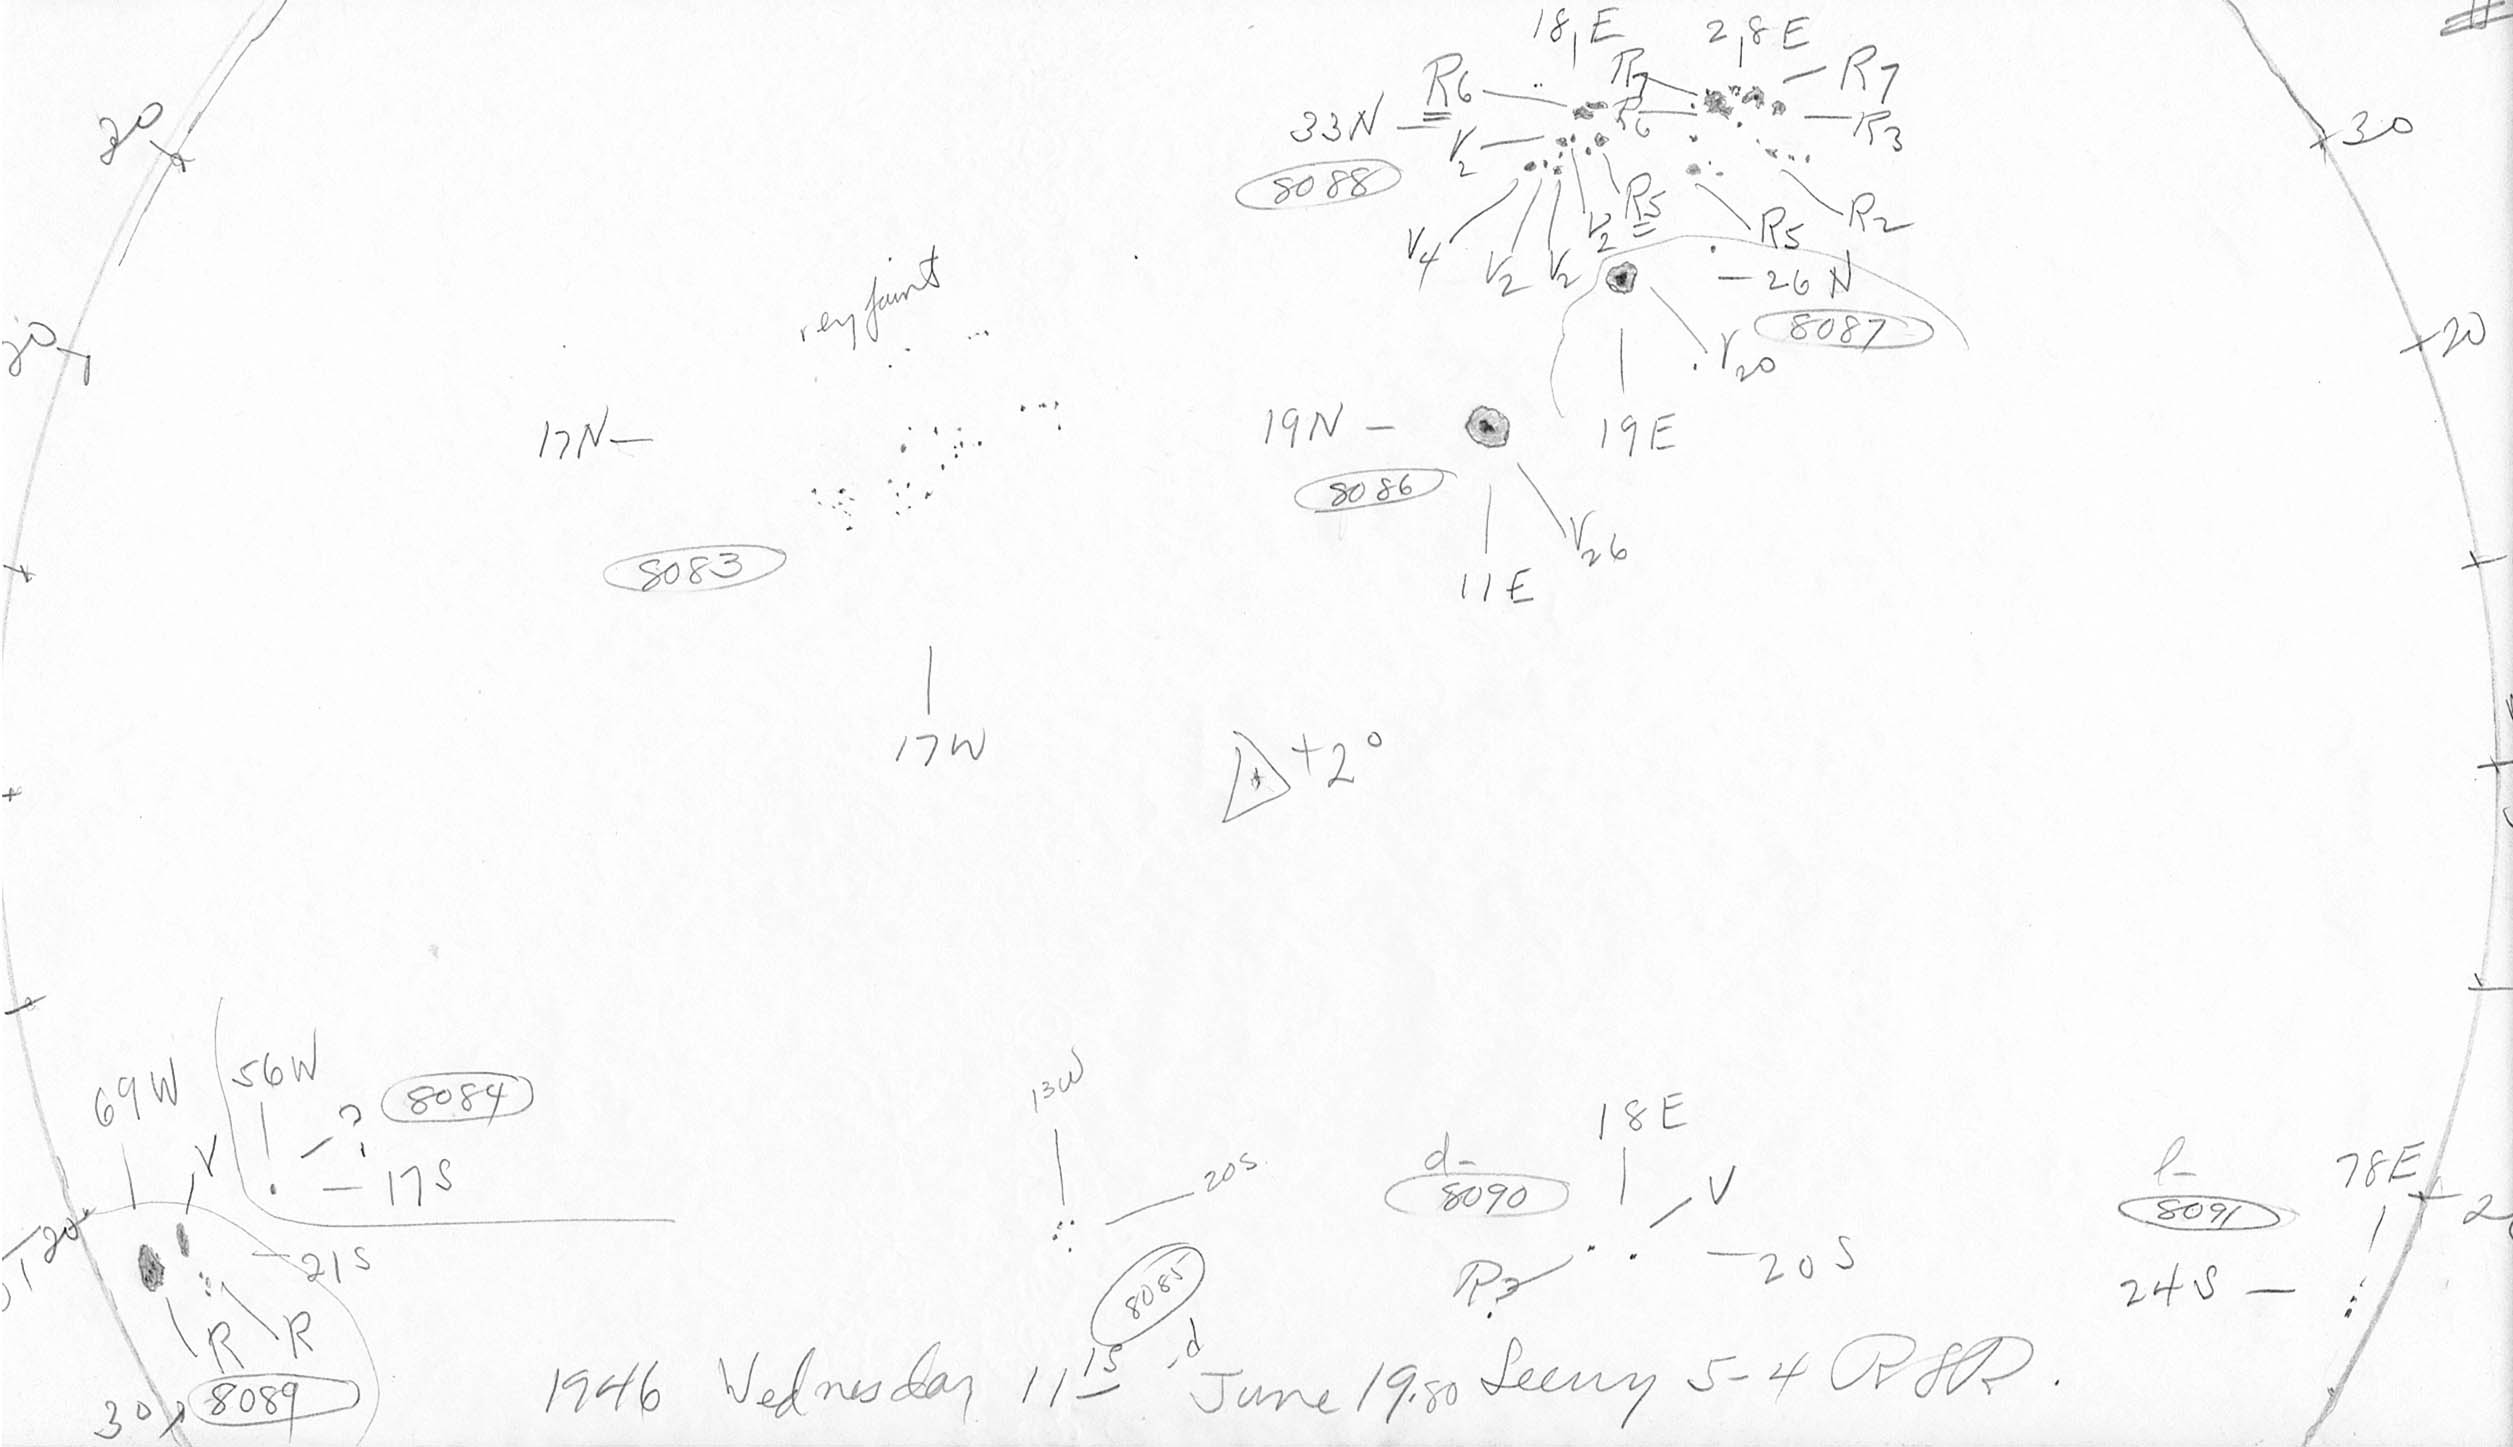 18 E 2,8 E
R6 R7 R7
33N R6 R3
V2
8088
V4 V2 V2 V2 R5 R5 R2
30 30
26 N
8087
V20
20 20
very faint
17N
19N 19E
8086
V26
8083
11E
17W
+2°
69W 56W
8084
V ?
17S
20
21S
R R
8089
30
13W
20S
8085
d
d-
8090
18E
V
R3
20S
l-
8091
78E
24S
2
1946 Wednesday 11 15 June 19.80 Seeing 5-4 RSR.